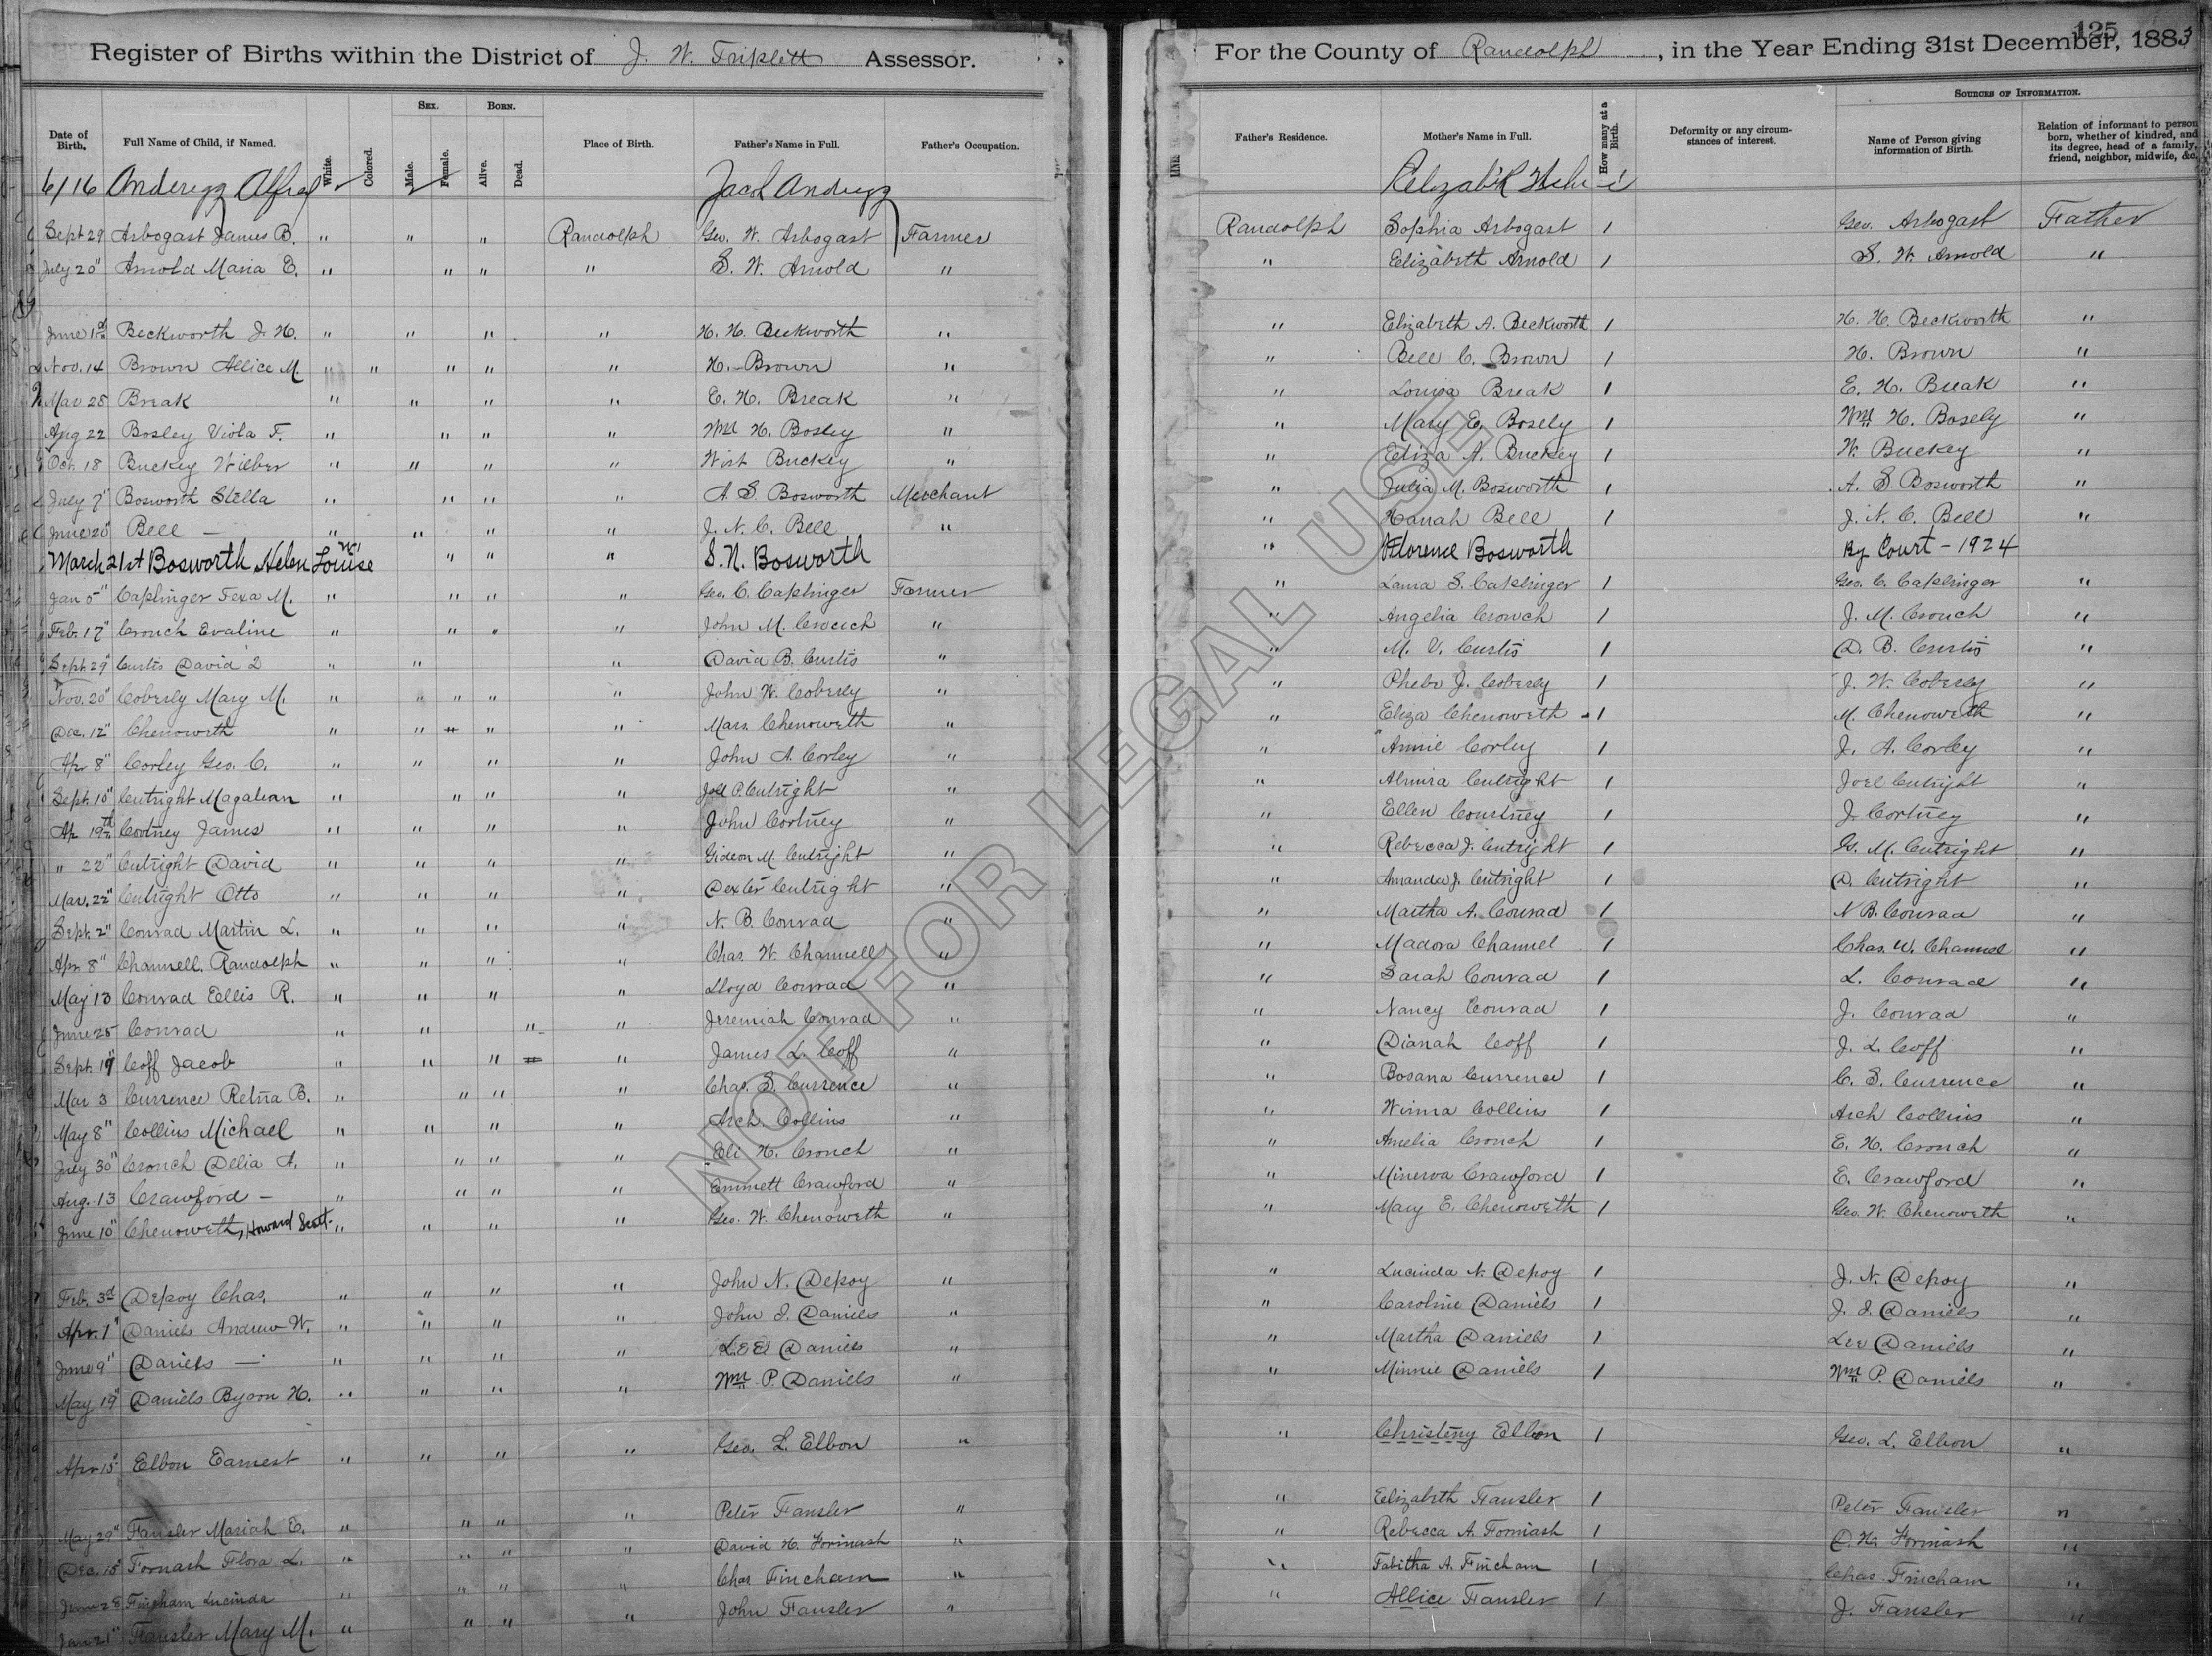 125
Register of Births within the District of J. W. Triplett Assessor.
For the County of Randolph, in the Year Ending 31st December, 1883
Date of Birth. Full Name of Child, if Named. White. Colored. Sex. Male. Female. Born. Alive. Dead. Place of Birth. Father's Name in Full. Father's Occupation.
Father's Residence. Mother's Name in Full. How many at a Birth. Deformity or any circumstances of interest. Sources of Information. Name of Person giving information of Birth. Relation of informant to person born, whether of kindred, and its degree, head of a family, friend, neighbor, midwife, &c.
6/16 Anderegg Alfred Jacob Anderegg
Sept 29 Arbogast James B. " " " Randolph Geo. W. Arbogast Farmer Randolph Sophia Arbogast 1 Geo. Arbogast Father
July 20" Arnold Maria E. " " " " S. W. Arnold " " Elizabeth Arnold 1 S. W. Arnold "
June 1st Beckworth J. H. " " " " H. H. Beckworth " " Elizabeth A. Beckworth 1 H. H. Beckworth "
Nov. 14 Brown Allice M. " " " " H. Brown " " Bell C. Brown 1 H. Brown "
Mar 28 Break " " " " E. H. Break " " Louisa Break 1 E. H. Break "
Aug 22 Bosley Viola F. " " " " Wm H. Bosley " " Mary E. Bosely 1 Wm H. Bosely "
Oct. 18 Buckey Wilber " " " " Wirt Buckey " " Eliza A. Buckey 1 W. Buckey "
July 7" Bosworth Stella " " " " A. S. Bosworth Merchant " Julia M. Bosworth 1 A. S. Bosworth "
June 20" Bell — " " " " J. N. C. Bell " " Hanah Bell 1 J. N. C. Bell "
March 21st Bosworth Helen Louise " " " " S. N. Bosworth " Florence Bosworth By Court - 1924
Jan 5" Caplinger Texa M. " " " " Geo. C. Caplinger Farmer " Laura S. Caplinger 1 Geo. C. Caplinger "
Feb. 17" Crouch Evaline " " " " John M. Crouch " " Angelia Crouch 1 J. M. Crouch "
Sept 29" Curtis David D " " " David B. Curtis " " M. V. Curtis 1 D. B. Curtis "
Nov. 20" Coberly Mary M. " " " " " John W. Coberly " " Phebe J. Coberly 1 J. W. Coberly "
Dec. 12" Chenowith " " " " Mars. Chenoweth " " Eliza Chenoweth 1 M. Chenoweth "
Apr 8" Corley Geo. C. " " " " John A. Corley " " Annie Corley 1 J. A. Corley "
Sept. 10" Cutright Magalean " " " " Joel P. Cutright " " Almira Cutright 1 Joel Cutright "
Ap. 19th Cortney James " " " " John Cortney " " Ellen Courtney 1 J. Cortney "
" 22" Cutright David " " " " Gideon M. Cutright " " Rebecca J. Cutright 1 G. M. Cutright "
Mar. 22" Cutright Otto " " " " Dexter Cutright " " Amanda J. Cutright 1 D. Cutright "
Sept. 2" Conrad Martin L. " " " " N. B. Conrad " " Martha A. Conrad 1 N B. Conrad "
Apr 8" Channell Randolph " " " " Chas. W. Channell " " Madora Channel 1 Chas. W. Channel "
May 13 Conrad Ellis R. " " " " Lloyd Conrad " " Sarah Conrad 1 L. Conrad "
June 25 Conrad " " " " Jeremiah Conrad " " Nancy Conrad 1 J. Conrad "
Sept. 19" Coff Jacob " " " " James L. Coff " " Dianah Coff 1 J. L. Coff "
Mar 3 Currence Retna B. " " " " Chas. S. Currence " " Rosana Currence 1 C. S. Currence "
May 8" Collins Michael " " " " Arch. Collins " " Collins 1 Arch Collins "
July 30" Crouch Delia A. " " " " Eli H. Crouch " " Amelia Crouch 1 E. H. Crouch "
Aug. 13 Crawford - " " " " Emmett Crawford " " Minerva Crawford 1 E. Crawford "
June 10" Chenoweth, Howard Scott " " " " Geo. W. Chenoweth " " Mary E. Chenoweth 1 Geo. W. Chenoweth "
Feb. 3d Depoy Chas. " " " " John N. Depoy " " Lucinda N. Depoy 1 J. N. Depoy "
Apr. 1" Daniels Andrew W. " " " " John I. Daniels " " Caroline Daniels 1 J. I. Daniels "
June 9" Daniels — " " " " Lee Daniels " " Martha Daniels 1 Lee Daniels "
May 19" Daniels Byron H. " " " " Wm P. Daniels " " Minnie Daniels 1 Wm P. Daniels "
Apr 15" Elbon Earnest " " " " Geo. L. Elbon " " Christeny Elbon 1 Geo. L. Elbon "
May 29" Fansler Mariah E. " " " " Peter Fansler " " Elizabeth Fansler 1 Peter Fansler "
Dec. 18" Formash Flora L. " " " " David H. Formash " " Rebecca A. Formash 1 D. H. Formash "
June 28 Fincham Lucinda " " " " Chas Fincham " " Tabitha A. Fincham 1 Chas Fincham "
Jan 21" Fansler Mary M. " " " " John Fansler " " Allice Fansler 1 J. Fansler "
NOT FOR LEGAL USE